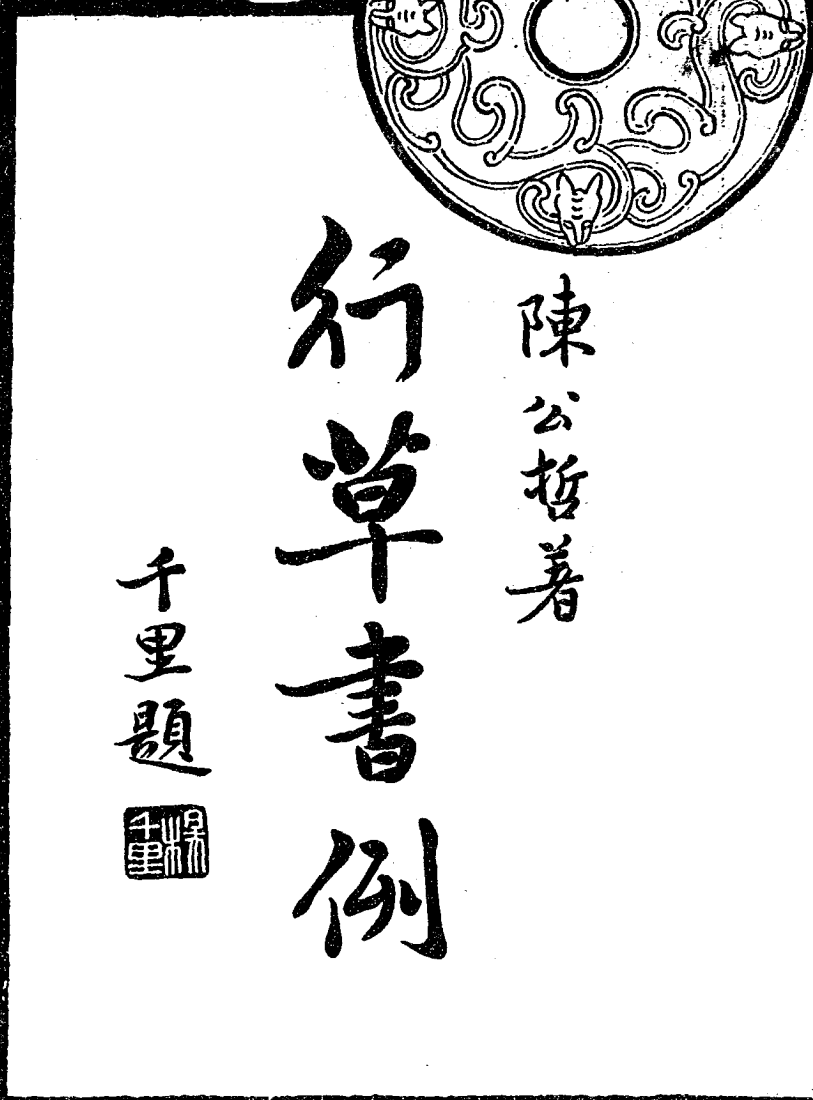 陳公哲著
行草書例
千里題
楊千里